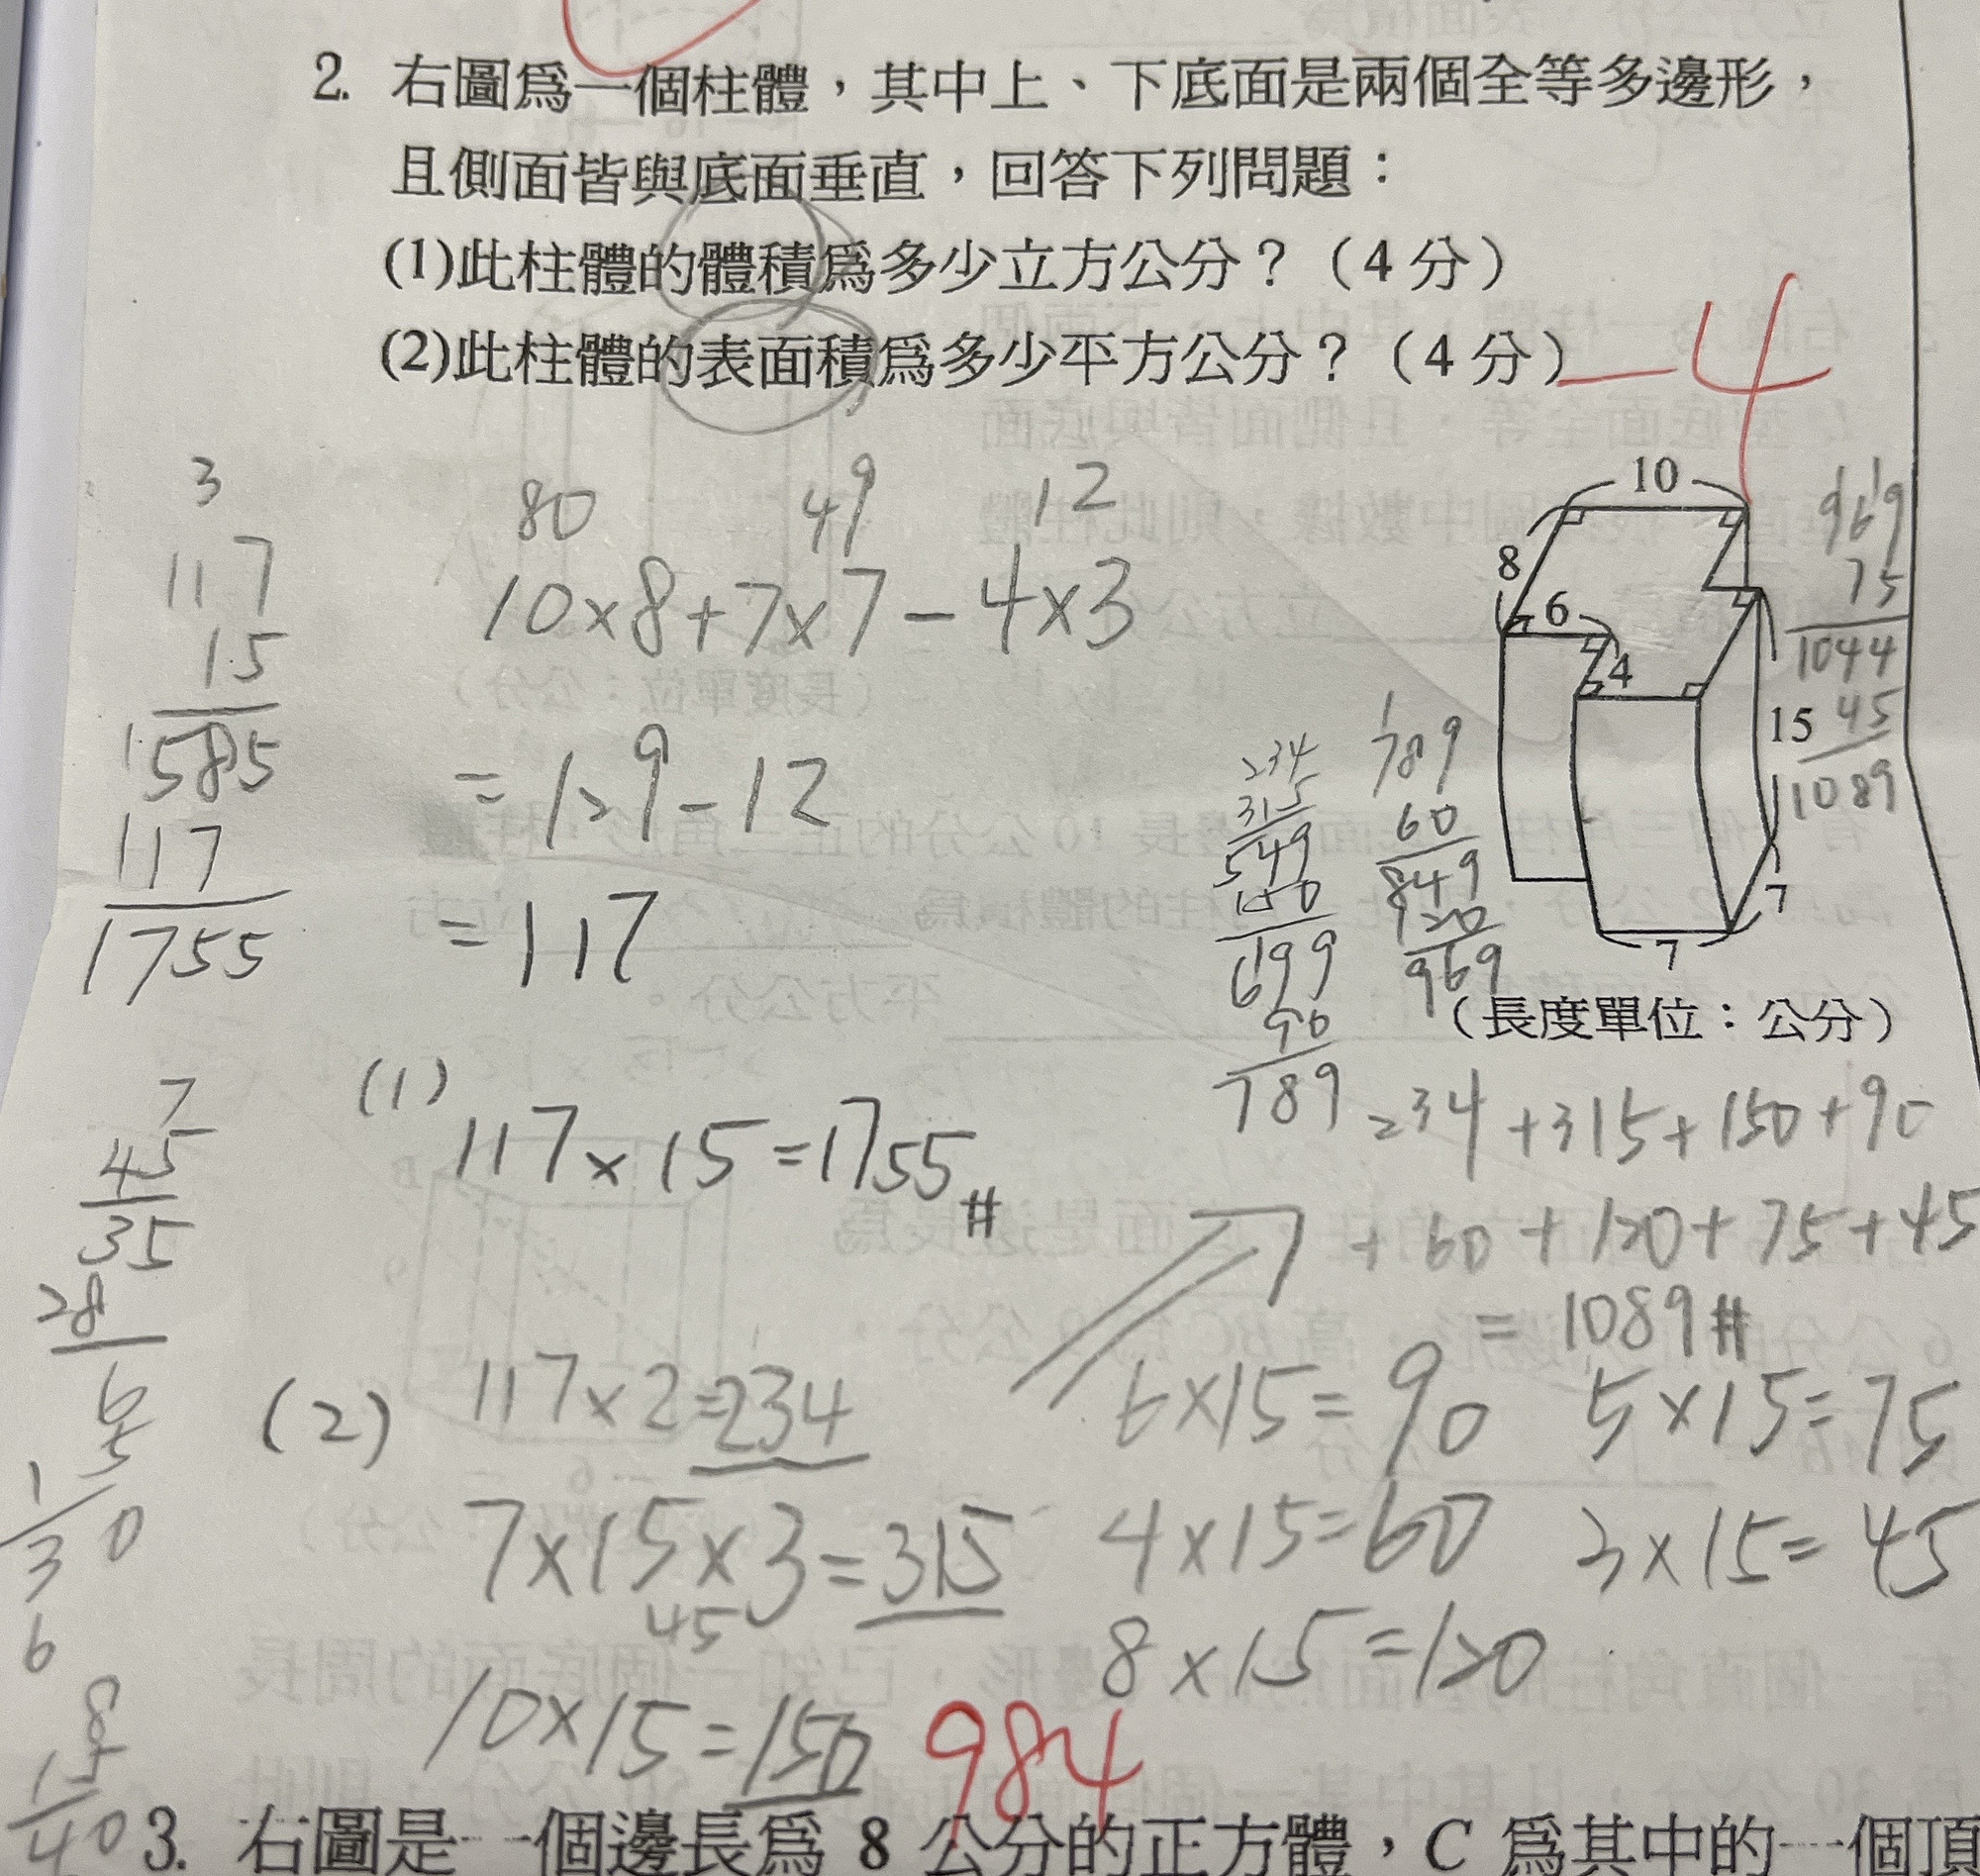 2. 右圖為一個柱體，其中上、下底面是兩個全等多邊形，
且側面皆與底面垂直，回答下列問題：
(1)此柱體的體積為多少立方公分？（4 分）
(2)此柱體的表面積為多少平方公分？（4 分）
-4
10
8
6
4
15
7
7
（長度單位：公分）
3
117
15
585
117
1755
80 49 12
10×8+7×7-4×3
=129-12
=117
234
315
549
150
699
90
789
1
789
60
849
120
969
969
75
1044
45
1089
(1) 117×15=1755#
234+315+150+90
+60+120+75+45
=1089#
7
45
35
28
(2) 117×2=234
7×15×3=315
45
10×15=150
6×15=90
4×15=60
8×15=120
5×15=75
3×15=45
984
3. 右圖是一個邊長為 8 公分的正方體，C 為其中的一個頂